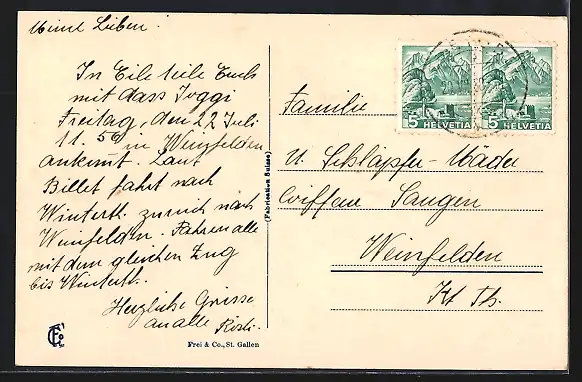 Meine Lieben.
In Eile teile Euch
mit dass Joggi
Freitag, den 22 Juli
11.50 in Weinfelden
ankommt. Laut
Billet fährt nach
Winterth. zurück nach
Weinfelden. Fahren alle
mit dem gleichen Zug
bis Winterth.
Herzliche Grüsse
an alle Rösli.
Frei & Co., St. Gallen
(Fabrication Suisse)
5 HELVETIA
5 HELVETIA
Familie
U. Schläpfer-Mäder
Coiffeur Sangen
Weinfelden
Kt Th.